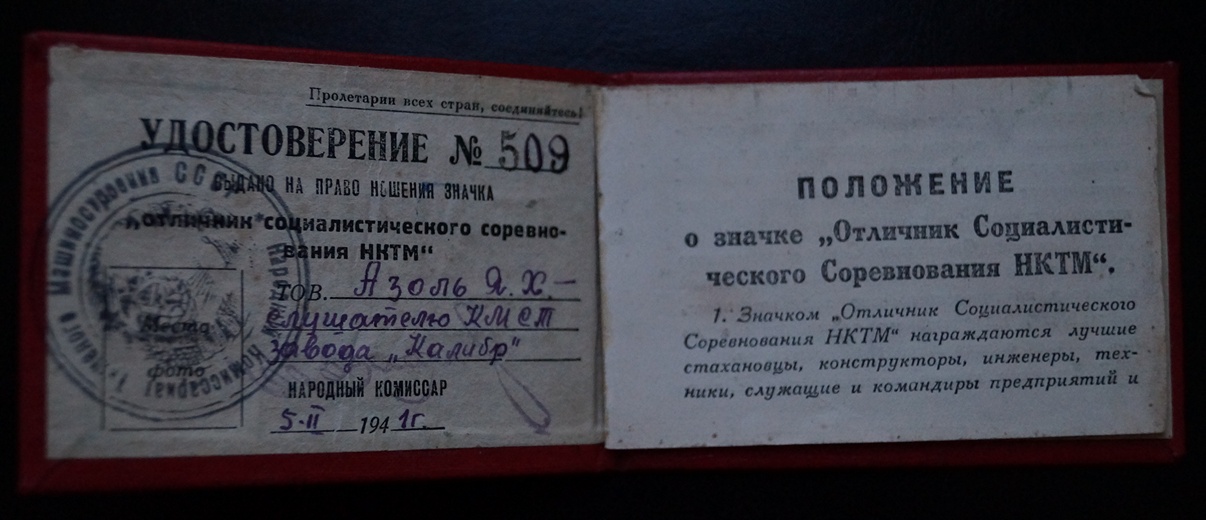 Пролетарии всех стран, соединяйтесь!
УДОСТОВЕРЕНИЕ № 509
ВЫДАНО НА ПРАВО НОШЕНИЯ ЗНАЧКА
„отличник социалистического соревно-
вания НКТМ“
ТОВ. Азоль Я. Х.-
слушателю КМСТ
завода „Калибр"
НАРОДНЫЙ КОМИССАР
5-II 1941г.
Место
фото
Народный Комиссариат Тяжелого Машиностроения СССР
ПОЛОЖЕНИЕ
о значке „Отличник Социалисти-
ческого Соревнования НКТМ“.
1. Значком „Отличник Социалистического
Соревнования НКТМ“ награждаются лучшие
стахановцы, конструкторы, инженеры, тех-
ники, служащие и командиры предприятий и